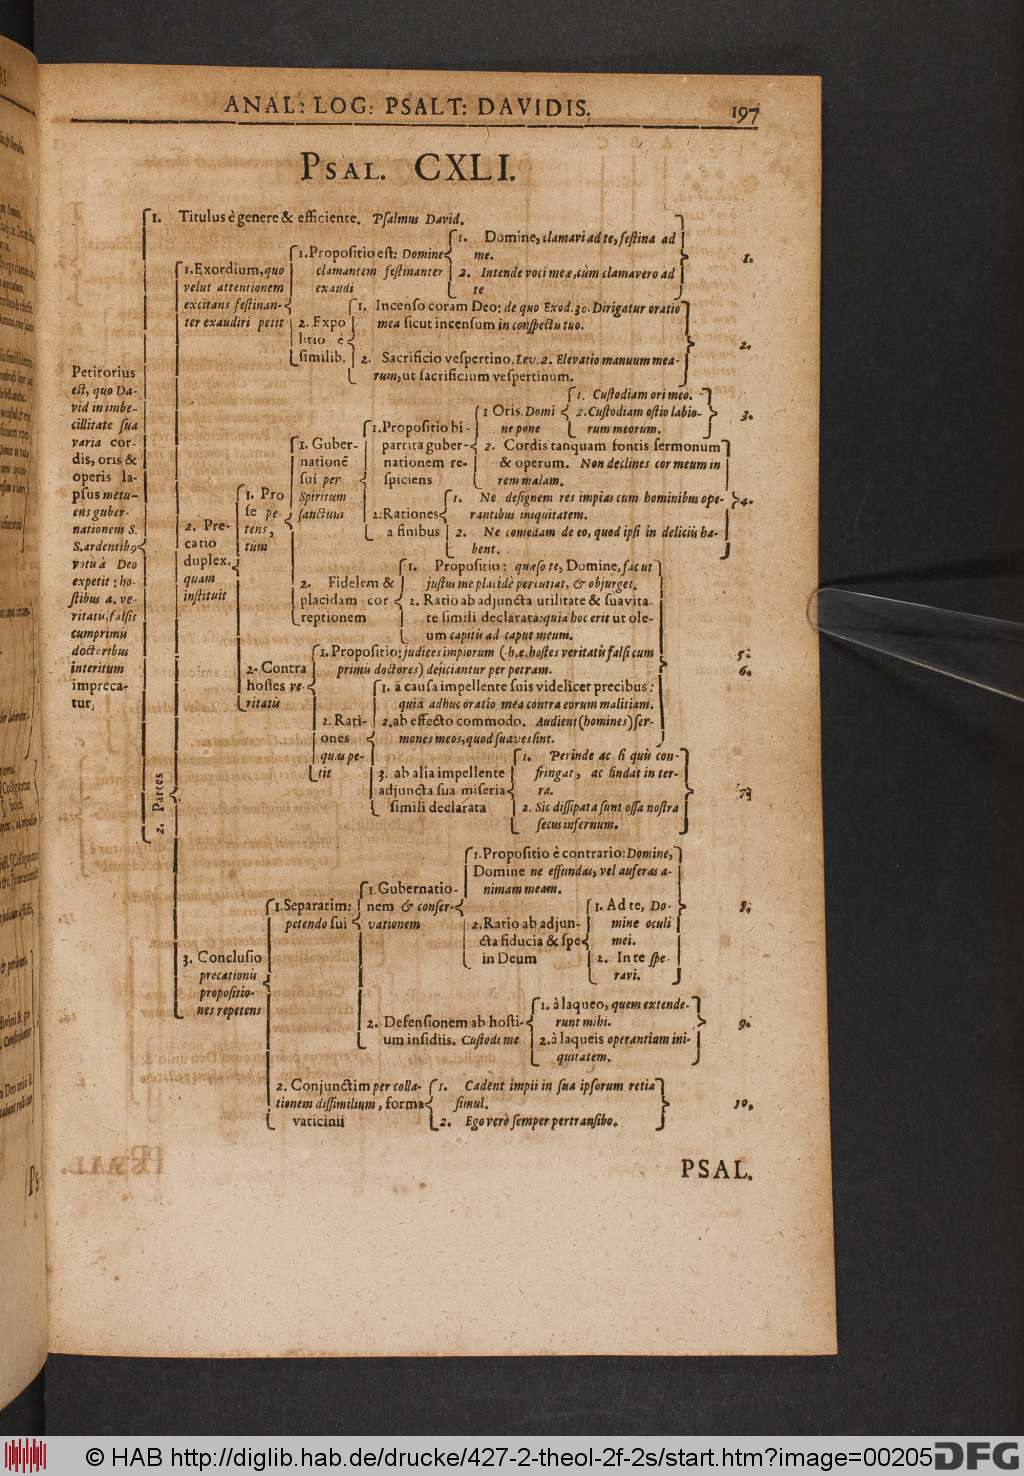 ANAL: LOG: PSALT: DAVIDIS.
197
PSAL. CXLI.
Petitorius
est, quo Da-
vid in imbe-
cillitate sua
varia cor-
dis, oris &
operis la-
psus metu-
ens guber-
nationem S.
S. ardentib9
votis à Deo
expetit: ho-
stibus a. ve-
ritatis, falsis
cumprimis
doctoribus
interitum
impreca-
tur.
1. Titulus è genere & efficiente. Psalmus David.
2. Partes
1. Exordium, quo
velut attentionem
excitans festinan-
ter exaudiri petit
1. Propositio est: Domine
clamantem festinanter
exaudi
1. Domine, clamavi ad te, festina ad
me.
2. Intende voci meæ, cùm clamavero ad
te
1.
2. Expo
litio è
similib.
1. Incenso coram Deo: de quo Exod. 30. Dirigatur oratio
mea sicut incensum in conspectu tuo.
2. Sacrificio vespertino. Lev. 2. Elevatio manuum mea-
rum, ut sacrificium vespertinum.
2.
2. Pre-
catio
duplex,
quam
instituit
1. Pro
se pe-
tens,
tùm
1. Guber-
nationẽ
sui per
Spiritum
sanctum
1. Propositio bi-
partita guber-
nationem re-
spiciens
1 Oris. Domi
ne pone
1. Custodiam ori meo.
2. Custodiam ostio labio-
rum meorum.
3.
2. Cordis tanquam fontis sermonum
& operum. Non declines cor meum in
rem malam.
2. Rationes
a finibus
1. Ne designem res impias cum hominibus ope-
rantibus iniquitatem.
2. Ne comedam de eo, quod ipsi in deliciis ha-
bent.
4.
2. Fidelem &
placidam cor
reptionem
1. Propositio: quaso te, Domine, fac ut
justus me placidè percutiat, & objurget.
2. Ratio ab adjuncta utilitate & suavita-
te simili declarata: quia hoc erit ut ole-
um capitis ad caput meum.
2. Contra
hostes ve-
ritatis
1. Propositio: judices impiorum (h.e. hostes veritatis falsi cum
primis doctores) dejiciantur per petram.
5.
6.
2. Rati-
ones
quas pe-
tit
1. a causa impellente suis videlicet precibus:
quia adhuc oratio mea contra eorum malitiam.
2. ab effecto commodo. Audient (homines) ser-
mones meos, quod suaves sint.
3. ab alia impellente
adjuncta sua miseria
simili declarata
1. Perinde ac si quis con-
fringat, ac findat in ter-
ra.
2. Sic dissipata sunt ossa nostra
secus infernum.
7.
3. Conclusio
precationis
propositio-
nes repetens
1. Separatim:
petendo sui
1. Gubernatio-
nem & conser-
vationem
1. Propositio è contrario: Domine,
Domine ne effundas, vel auferas a-
nimam meam.
2. Ratio ab adjun-
cta fiducia & spe
in Deum
1. Ad te, Do-
mine oculi
mei.
2. In te spe-
ravi.
8.
2. Defensionem ab hosti-
um insidiis. Custodi me
1. à laqueo, quem extende-
runt mihi.
2. à laqueis operantium ini-
quitatem.
9.
2. Conjunctim per colla-
tionem dissimilium, forma
vaticinii
1. Cadent impii in sua ipsorum retia
simul.
2. Ego verò semper pertransibo.
10.
PSAL.
© HAB http://diglib.hab.de/drucke/427-2-theol-2f-2s/start.htm?image=00205
DFG